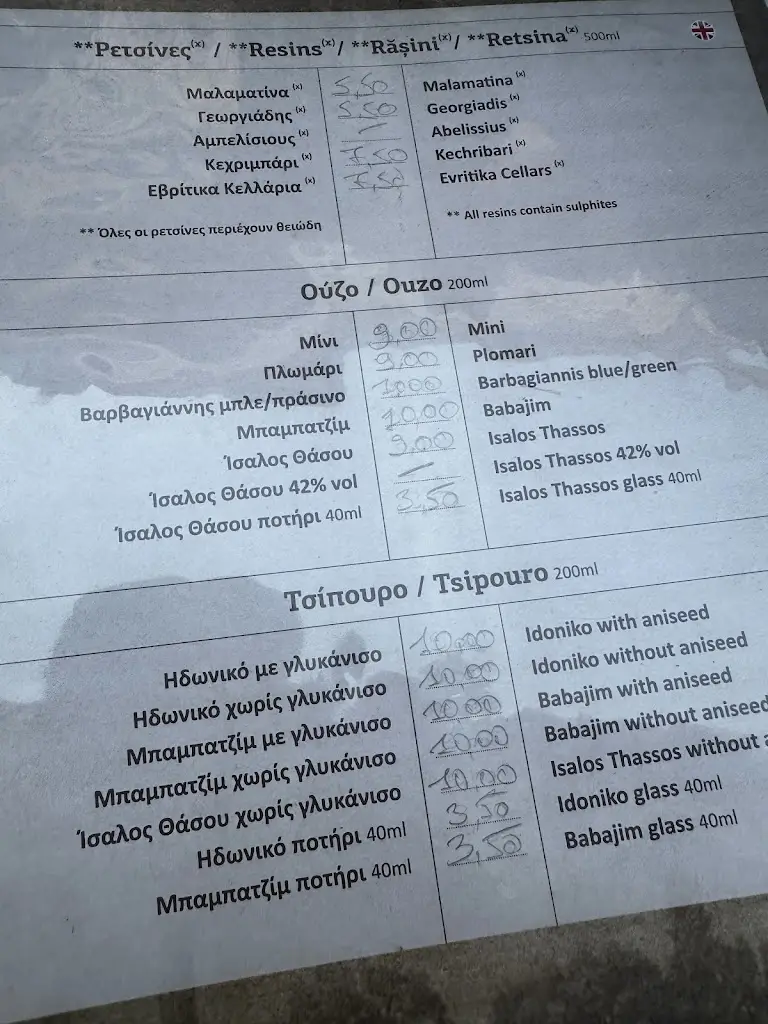 **Ρετσίνες(x) / **Resins(x)/ **Rășini(x)/ **Retsina(x) 500ml
Μαλαματίνα (x) 5,50 Malamatina (x)
Γεωργιάδης (x) 5,50 Georgiadis (x)
Αμπελίσιους (x) — Abelissius (x)
Κεχριμπάρι (x) 7,50 Kechribari (x)
Εβρίτικα Κελλάρια (x) 7,50 Evritika Cellars (x)
** Όλες οι ρετσίνες περιέχουν θειώδη ** All resins contain sulphites
Ούζο / Ouzo 200ml
Μίνι 9,00 Mini
Πλωμάρι 9,00 Plomari
Βαρβαγιάννης μπλε/πράσινο 10,00 Barbagiannis blue/green
Μπαμπατζίμ 10,00 Babajim
Ίσαλος Θάσου 9,00 Isalos Thassos
Ίσαλος Θάσου 42% vol — Isalos Thassos 42% vol
Ίσαλος Θάσου ποτήρι 40ml 3,50 Isalos Thassos glass 40ml
Τσίπουρο / Tsipouro 200ml
Ηδωνικό με γλυκάνισο 10,00 Idoniko with aniseed
Ηδωνικό χωρίς γλυκάνισο 10,00 Idoniko without aniseed
Μπαμπατζίμ με γλυκάνισο 10,00 Babajim with aniseed
Μπαμπατζίμ χωρίς γλυκάνισο 10,00 Babajim without aniseed
Ίσαλος Θάσου χωρίς γλυκάνισο 10,00 Isalos Thassos without a
Ηδωνικό ποτήρι 40ml 3,50 Idoniko glass 40ml
Μπαμπατζίμ ποτήρι 40ml 3,50 Babajim glass 40ml